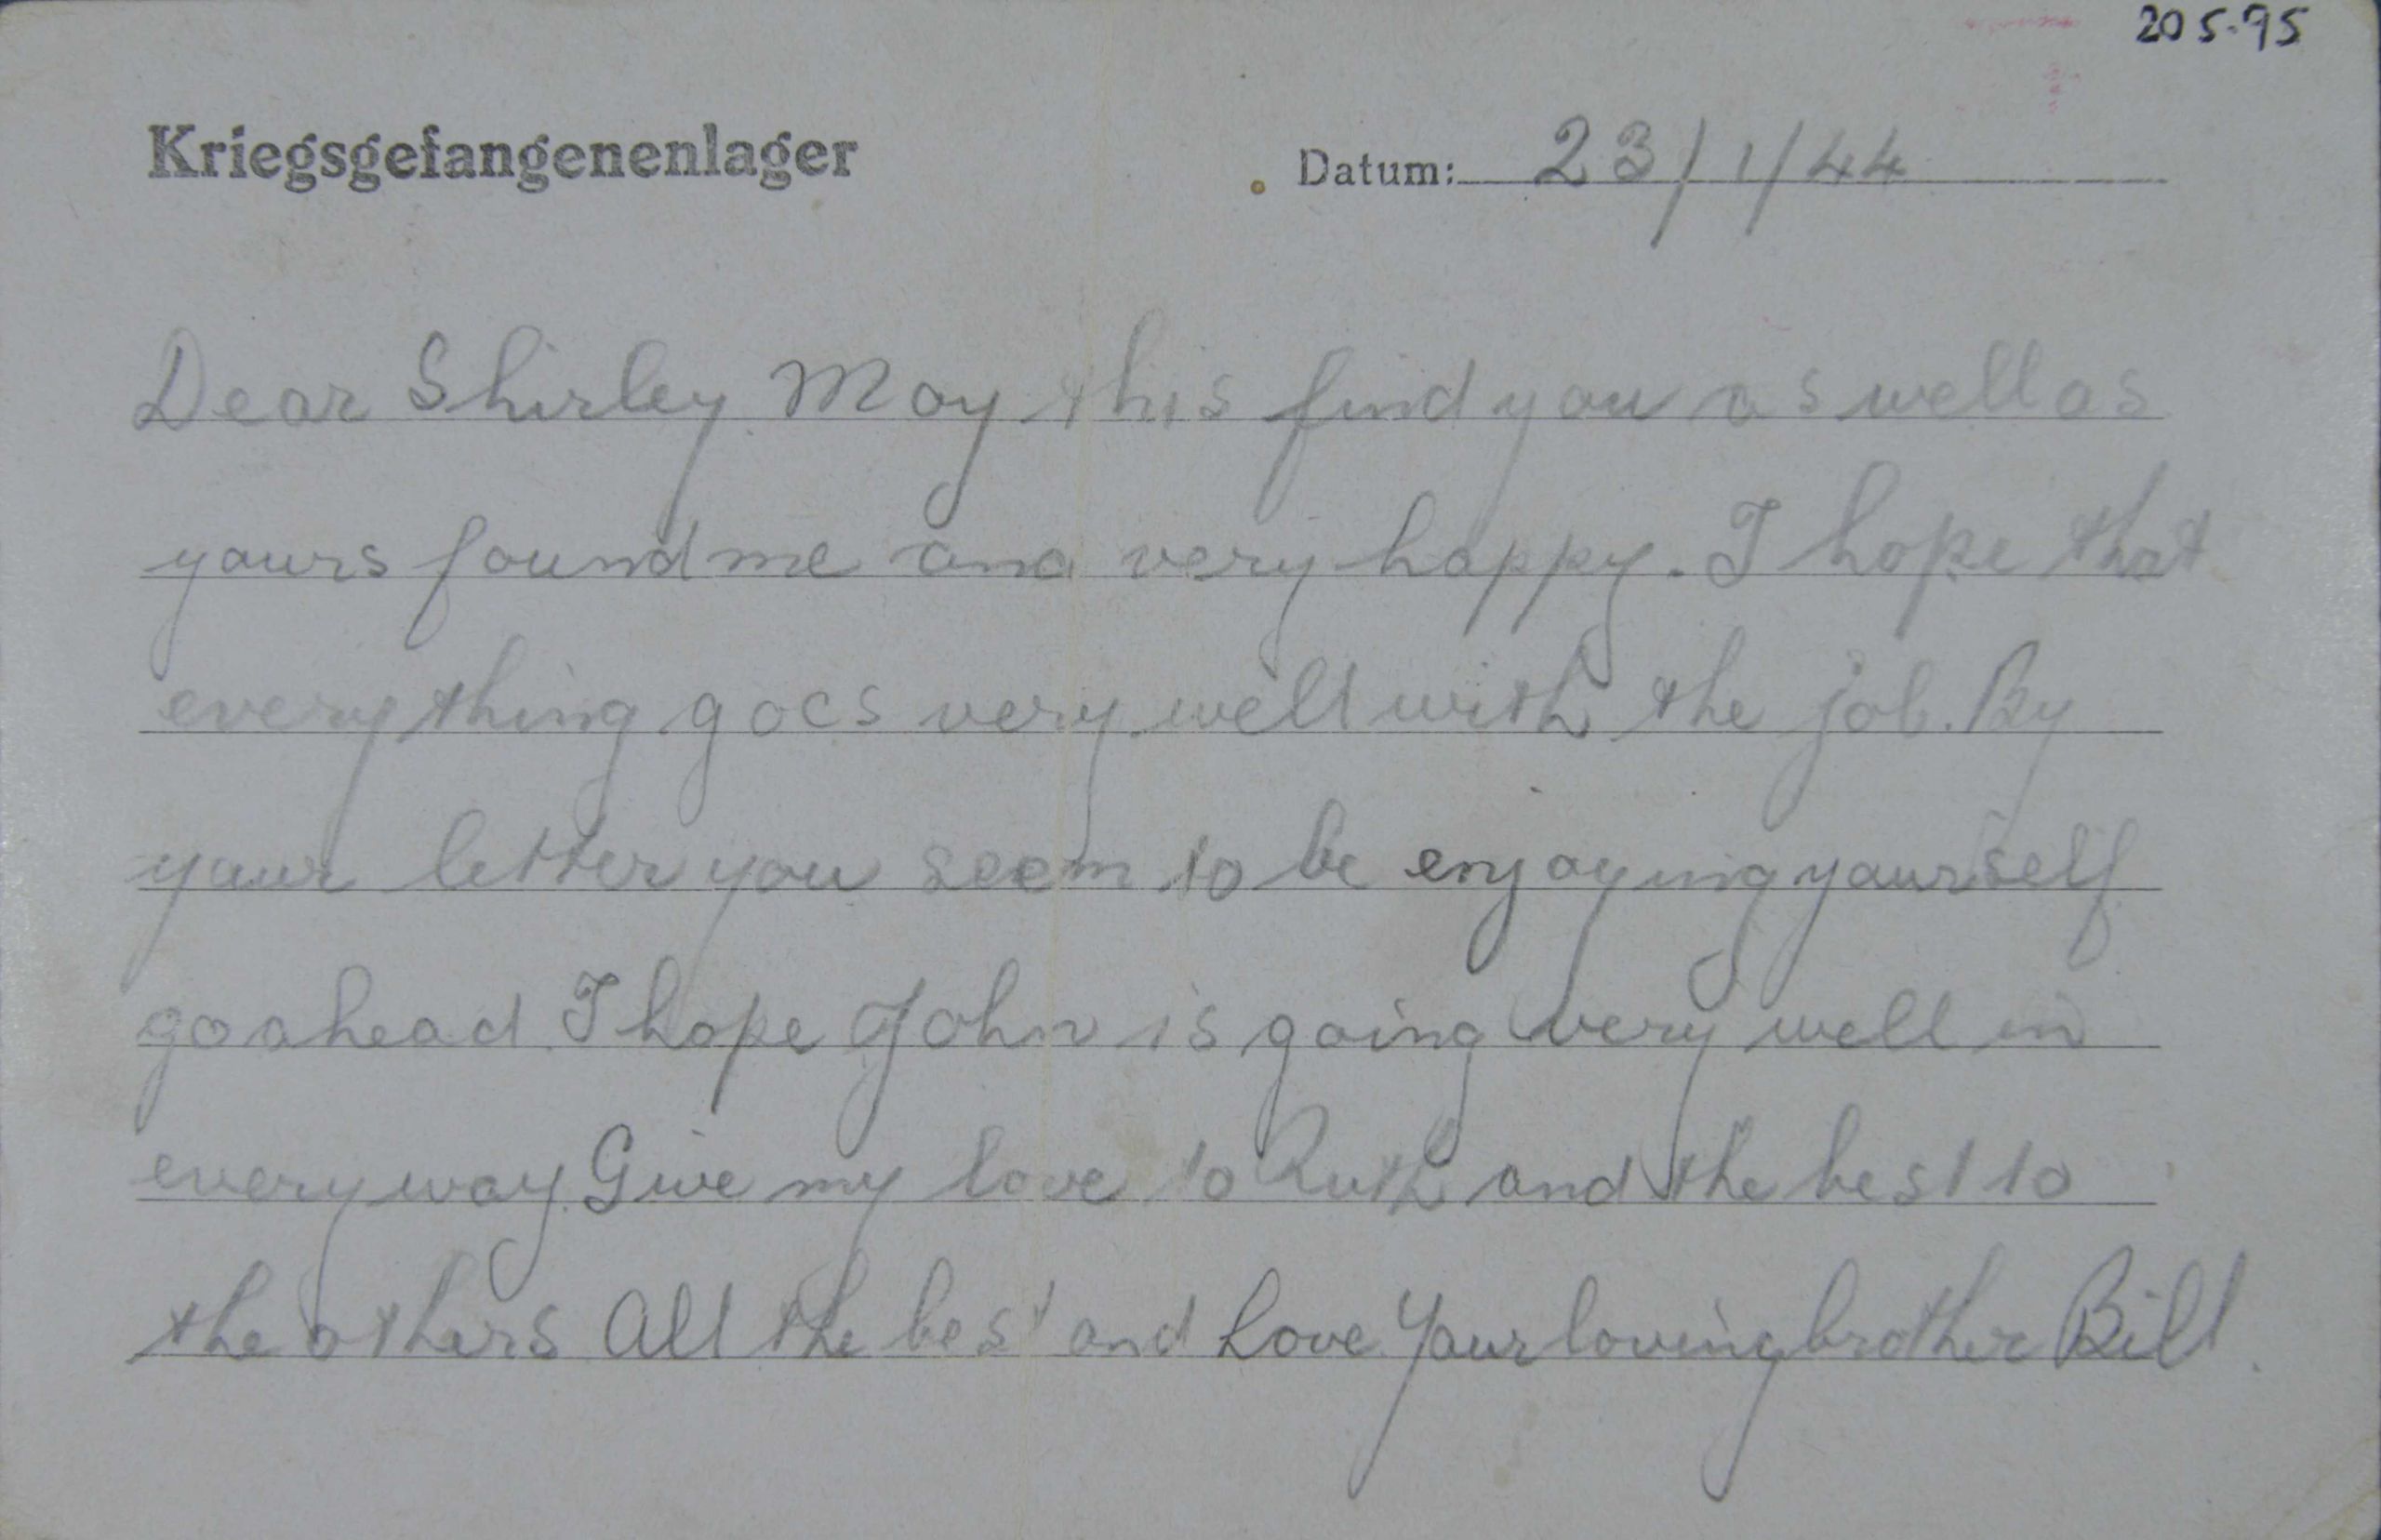 20 5.95
Kriegsgefangenenlager Datum: 23/1/44
Dear Shirley May this find you as well as
yours found me and very happy. I hope that
everything goes very well with the job. By
your letter you seem to be enjoying yourself
go ahead. I hope John is going very well in
every way. Give my love to Ruth and the best to
the others All the best and Love Your loving brother Bill.